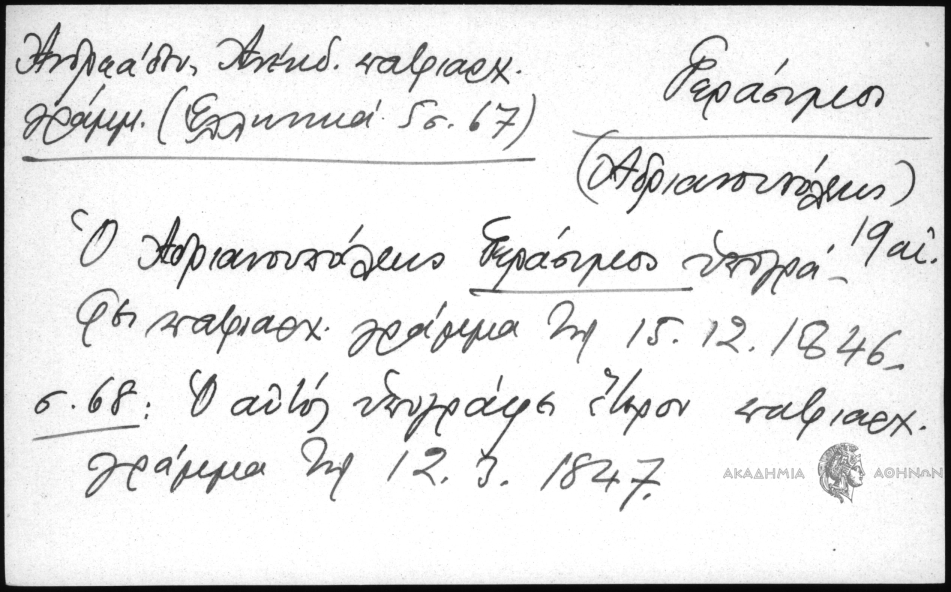 Ἀνδρεάδου, Ἀνέκδ. πατριαρχ.
γράμμ. (Ἑλληνικά 5 σ. 67)
Γεράσιμος
(Ἀδριανουπόλεως)
19 αἰ.
Ὁ Ἀδριανουπόλεως Γεράσιμος ὑπογρά-
φει πατριαρχ. γράμμα τῇ 15.12.1846.
σ. 68: Ὁ αὐτός ὑπογράφει ἕτερον πατριαρχ.
γράμμα τῇ 12.3.1847.
ΑΚΑΔΗΜΙΑ ΑΘΗΝΩΝ